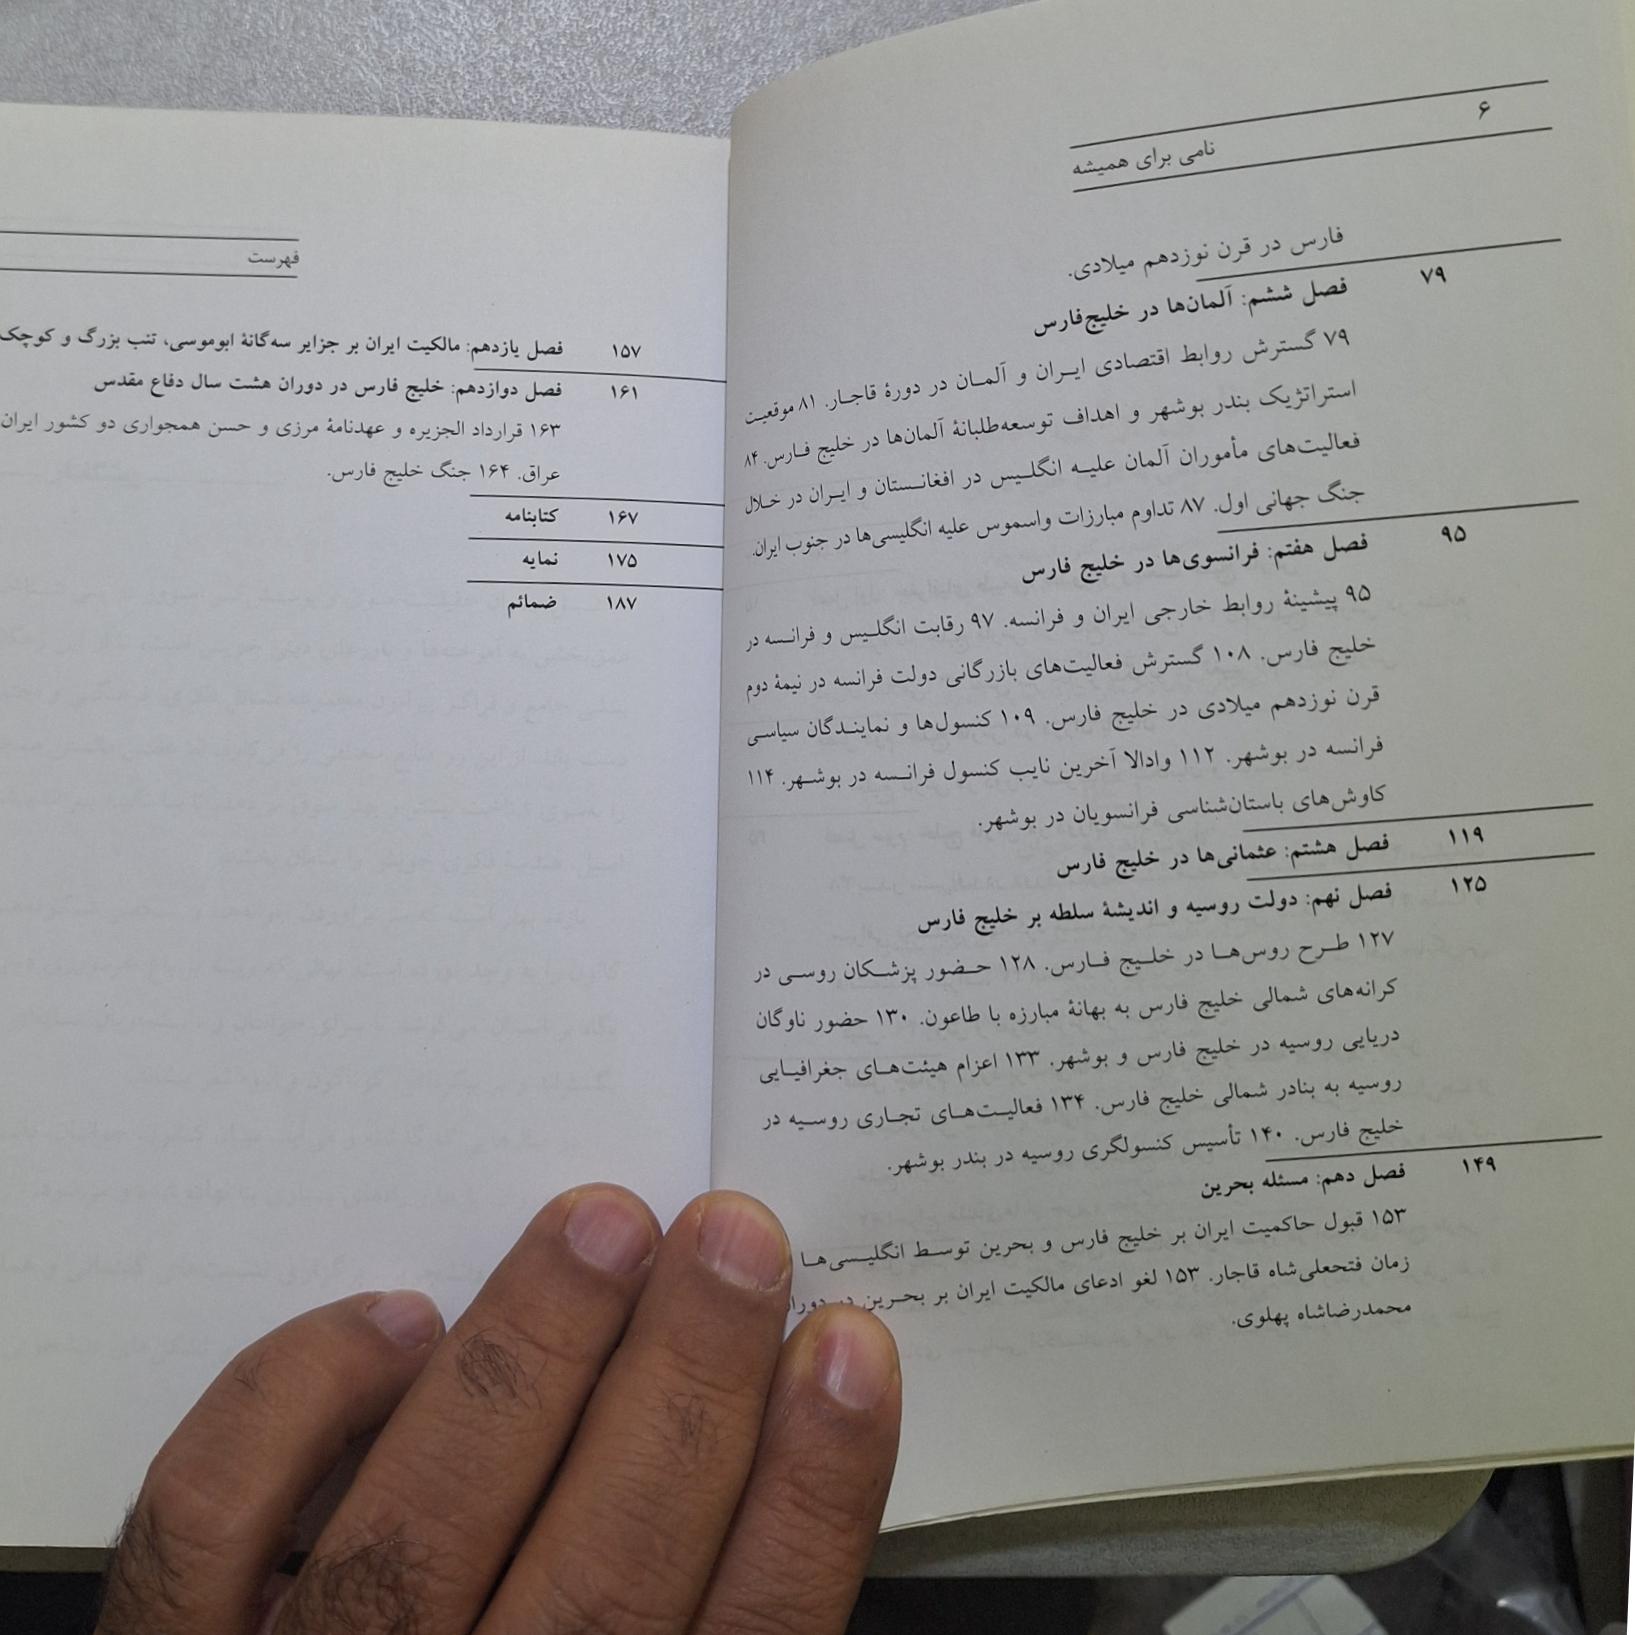 ۶
نامی برای همیشه
فارس در قرن نوزدهم میلادی.
۷۹ فصل ششم: آلمان‌ها در خلیج‌فارس
۷۹ گسترش روابط اقتصادی ایـران و آلمـان در دورۀ قاجـار. ۸۱ موقعیت
استراتژیک بندر بوشهر و اهداف توسعه‌طلبانۀ آلمان‌ها در خلیج فـارس. ۸۴
فعالیت‌های مأموران آلمان علیـه انگلـیس در افغانـستان و ایـران در خـلال
جنگ جهانی اول. ۸۷ تداوم مبارزات واسموس علیه انگلیسی‌ها در جنوب ایران.
۹۵ فصل هفتم: فرانسوی‌ها در خلیج فارس
۹۵ پیشینۀ روابط خارجی ایران و فرانسه. ۹۷ رقابت انگلـیس و فرانـسه در
خلیج فارس. ۱۰۸ گسترش فعالیت‌های بازرگانی دولت فرانسه در نیمۀ دوم
قرن نوزدهم میلادی در خلیج فارس. ۱۰۹ کنسول‌ها و نماینـدگان سیاسـی
فرانسه در بوشهر. ۱۱۲ وادالا آخرین نایب کنسول فرانـسه در بوشـهر. ۱۱۴
کاوش‌های باستان‌شناسی فرانسویان در بوشهر.
۱۱۹ فصل هشتم: عثمانی‌ها در خلیج فارس
۱۲۵ فصل نهم: دولت روسیه و اندیشۀ سلطه بر خلیج فارس
۱۲۷ طـرح روس‌هـا در خلـیج فـارس. ۱۲۸ حـضور پزشـکان روسـی در
کرانه‌های شمالی خلیج فارس به بهانۀ مبارزه با طاعون. ۱۳۰ حضور ناوگان
دریایی روسیه در خلیج فارس و بوشهر. ۱۳۳ اعزام هیئت‌هـای جغرافیـایی
روسیه به بنادر شمالی خلیج فارس. ۱۳۴ فعالیـت‌هـای تجـاری روسـیه در
خلیج فارس. ۱۴۰ تأسیس کنسولگری روسیه در بندر بوشهر.
۱۴۹ فصل دهم: مسئله بحرین
۱۵۳ قبول حاکمیت ایران بر خلیج فارس و بحرین توسـط انگلیـسی‌هـا
زمان فتحعلی‌شاه قاجار. ۱۵۳ لغو ادعای مالکیت ایران بر بحـرین در دوران
محمدرضاشاه پهلوی.
فهرست
۱۵۷ فصل یازدهم: مالکیت ایران بر جزایر سه‌گانۀ ابوموسی، تنب بزرگ و کوچک
۱۶۱ فصل دوازدهم: خلیج فارس در دوران هشت سال دفاع مقدس
۱۶۳ قرارداد الجزیره و عهدنامۀ مرزی و حسن همجواری دو کشور ایران
عراق. ۱۶۴ جنگ خلیج فارس.
۱۶۷ کتابنامه
۱۷۵ نمایه
۱۸۷ ضمائم